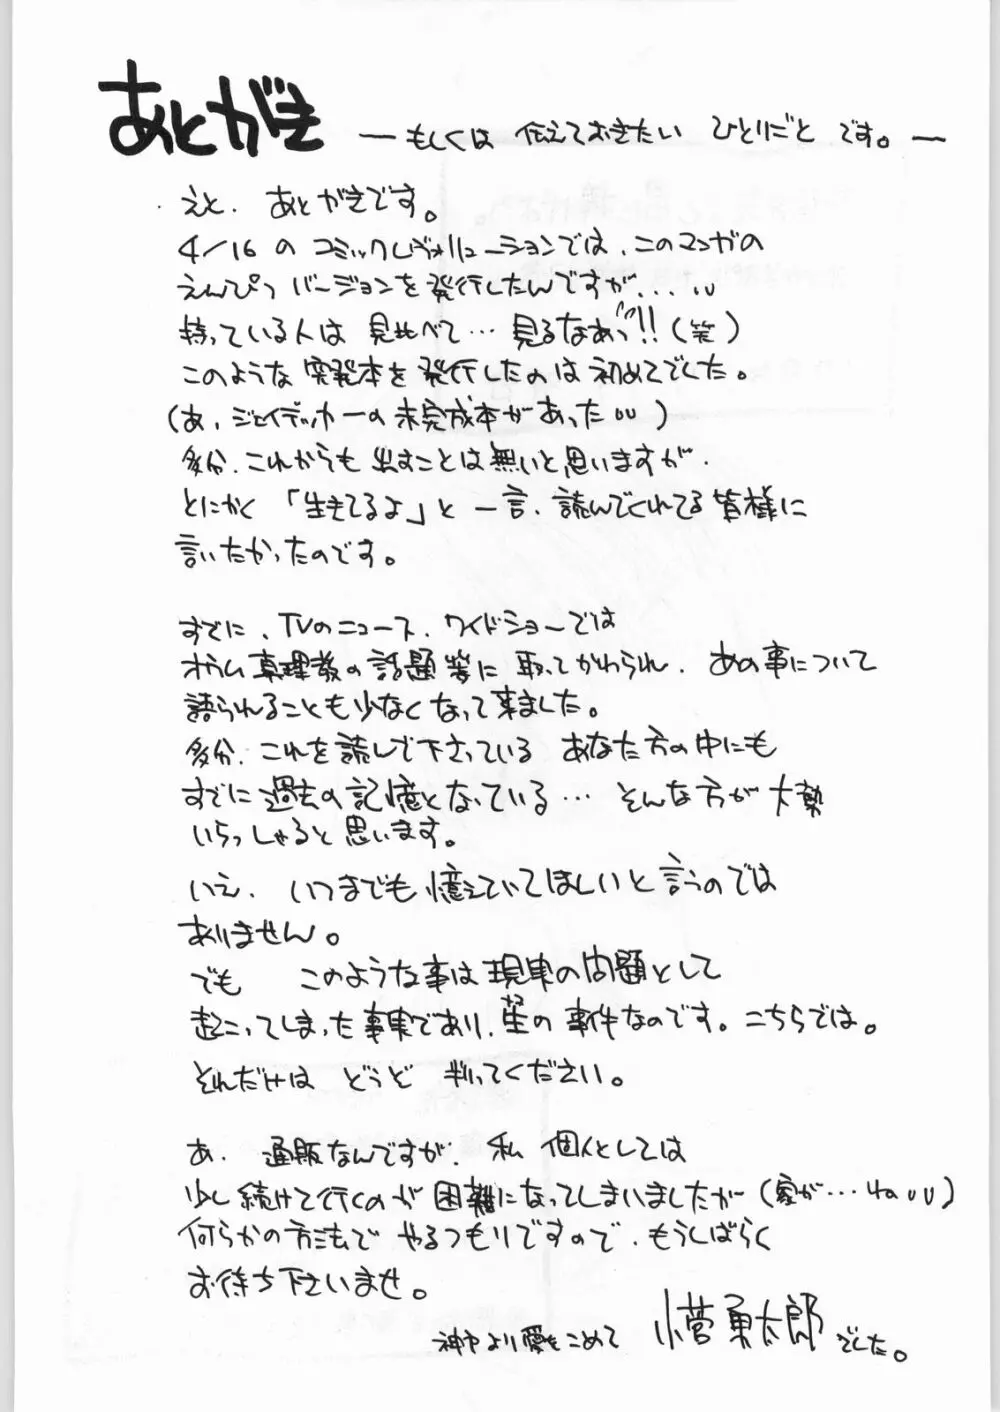 あとがき
― もしくは 伝えておきたい ひとりごと です。―
えと、あとがきです。
4/16の コミックレヴォリューションでは、このマンガの
えんぴつ バージョンを発行したんですが...
持っている人は 見比べて… 見るなあっ!!(笑)
このような 突発本を発行したのは初めてでした。
(あ、ジェイデッカーの未完成本があった)
多分、これからも 出すことは無いと思いますが、
とにかく「生きてるよ」と 一言、読んでくれてる皆様に
言いたかったのです。
すでに、TVのニュース、ワイドショーでは
オウム真理教の話題等に 取ってかわられ、あの事について
語られることも少なくなって来ました。
多分、これを読んで下さっている あなた方の中にも
すでに過去の記憶となっている… そんな方が大勢
いらっしゃると思います。
いえ、いつまでも憶えていてほしいと言うのでは
ありません。
でも このような事は現実の問題として
起こってしまった事実であり、生の事件なのです。こちらでは。
それだけは どうぞ 判ってください。
あ、通販なんですが、私 個人としては
少し続けて行くのが困難になってしまいましたが(家が…ね)
何らかの方法で やるつもりですので、もうしばらく
お待ち下さいませ。
神戸より愛をこめて 小菅勇太郎でした。